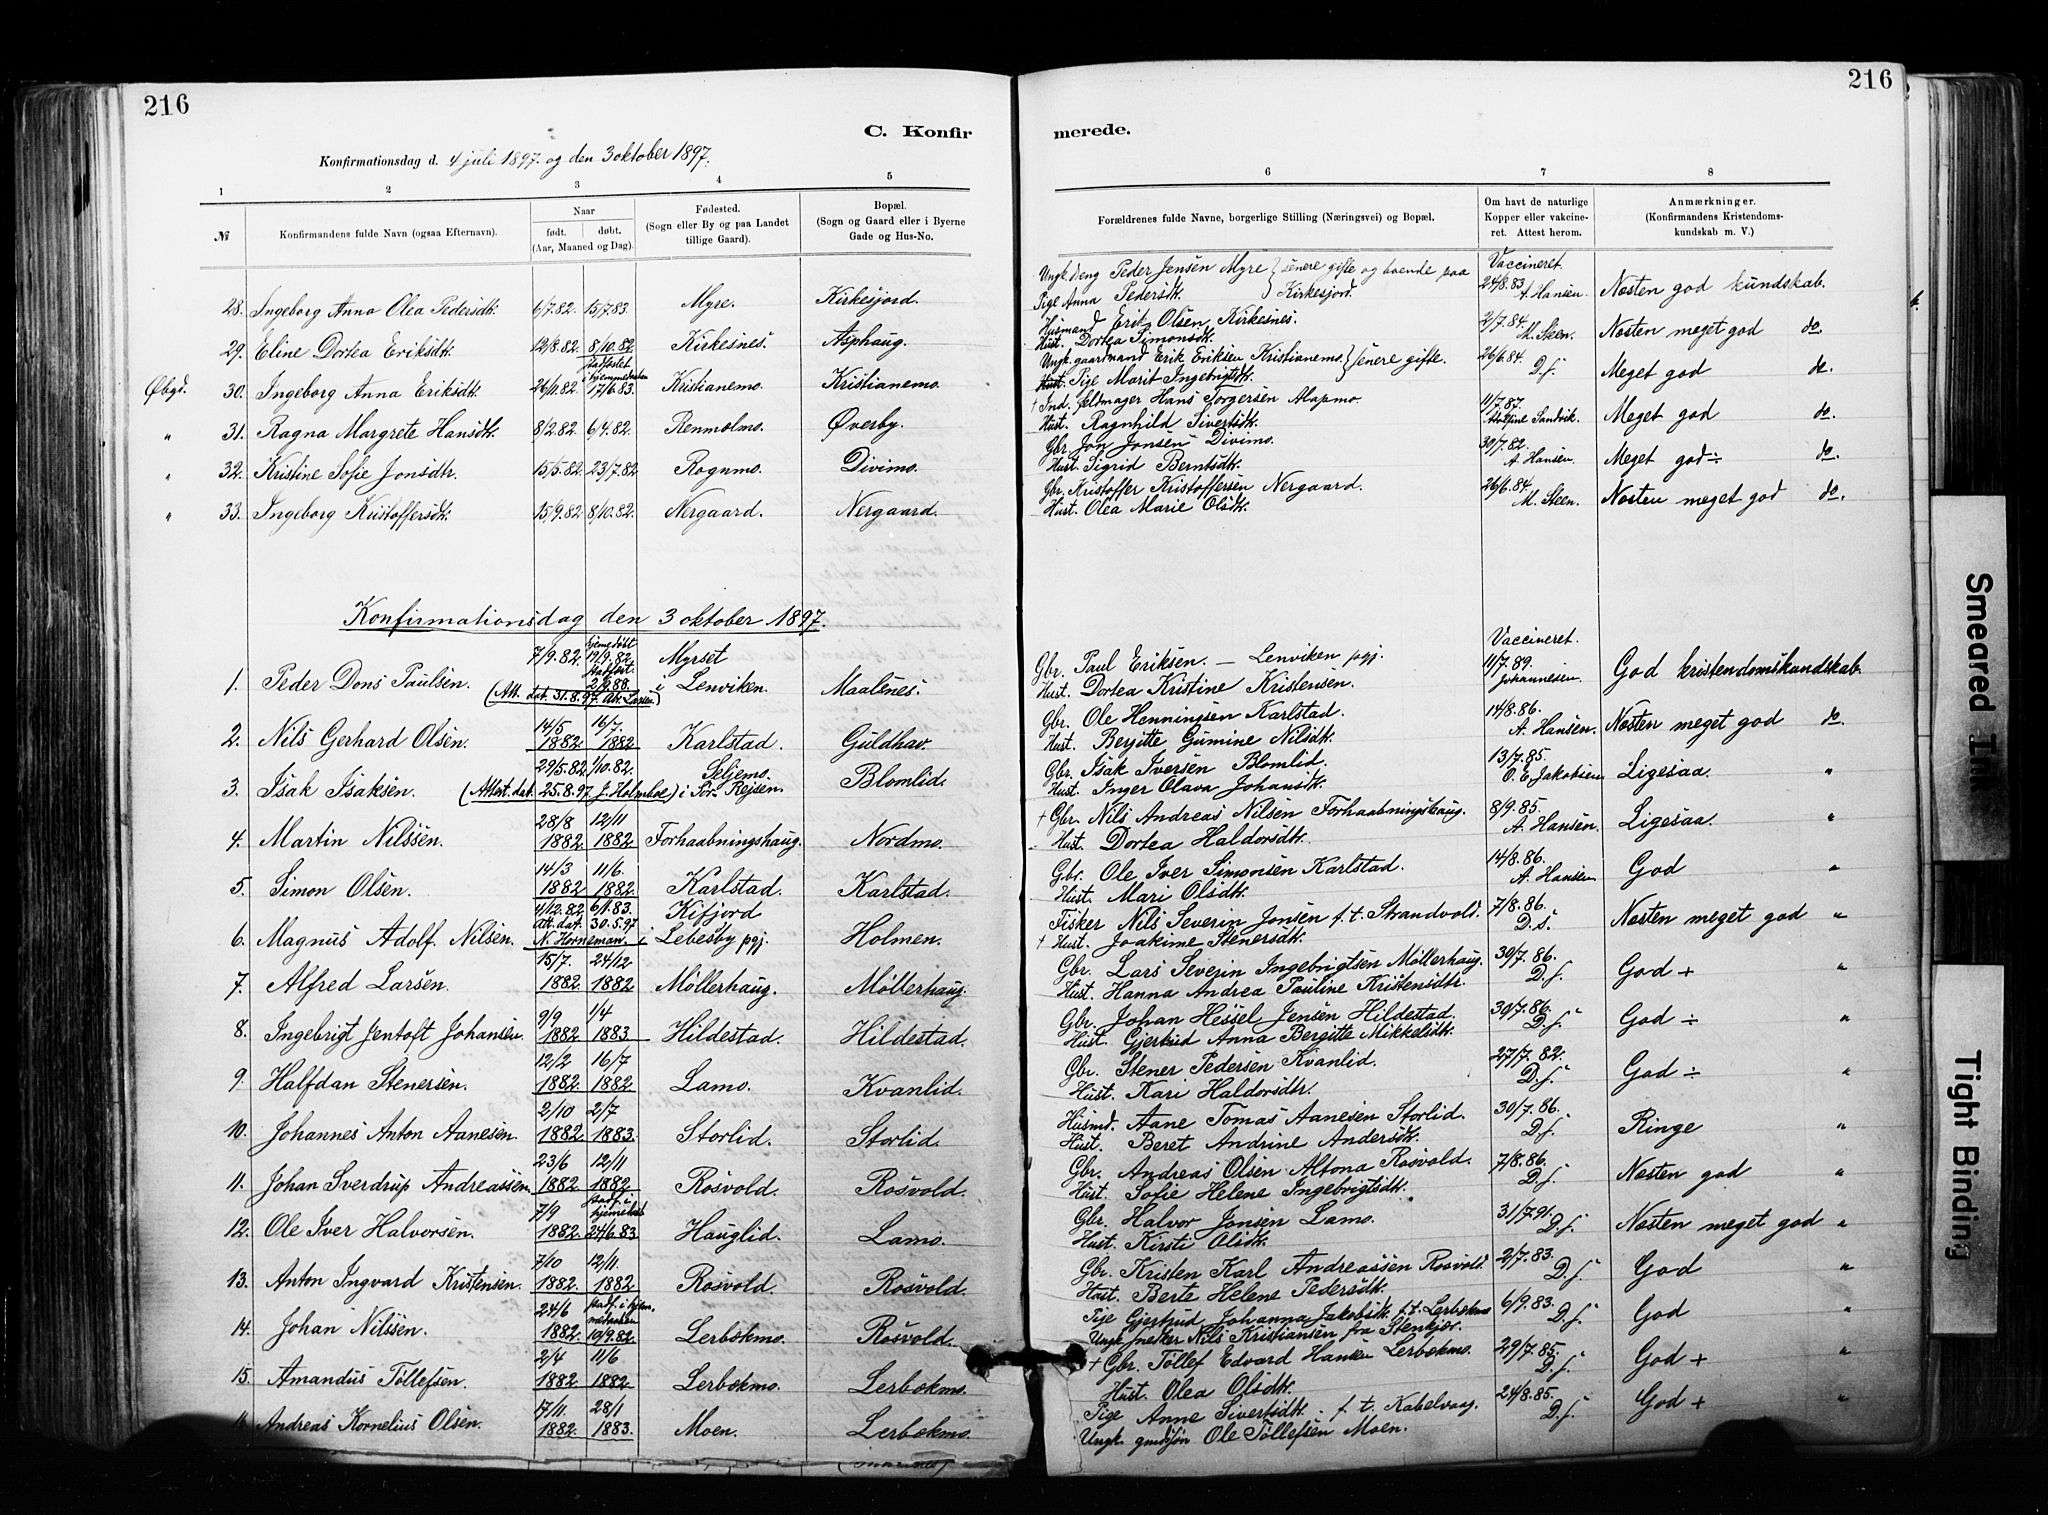 216
216
C. Konfir
merede.
Konfirmationsdag d. 4 juli 1897. og den 3 oktober 1897.
1 2 3 4 5 6 7 8
№ Konfirmandens fulde Navn (ogsaa Efternavn). Naar født. døbt. (Aar, Maaned og Dag). Fødested. (Sogn eller By og paa Landet tillige Gaard). Bopæl. (Sogn og Gaard eller i Byerne Gade og Hus-No.
Forældrenes fulde Navne, borgerlige Stilling (Næringsvei) og Bopæl. Om havt de naturlige Kopper eller vakcineret. Attest herom. Anmærkninger. (Konfirmandens Kristendomskundskab m. V.)
28. Ingeborg Anna Olea Pedersdtr. 6/7.82. 15/7.83. Myre. Kirkesjord. Ungk. Peder Jensen Myre } senere gifte og boende paa Pige Anna Pedersdtr. } Kirkesjord. Vaccineret. 24/8.83 A. Hansen. Næsten god kundskab.
29. Eline Dortea Eriksdtr. 12/8.82. 8/10.82 Kirkesnes. Asphaug. Husmand Erik Olsen Kirkesnes. Hust. Dortea Simonsdtr. 2/7.84. M. Steen. Næsten meget god do.
Øbgd. 30. Ingeborg Anna Eriksdtr. 26/11.82 stadfæstet i hjemmedaaben 17/6.83. Kristianemo. Kristianemo. Ungk. gaardmand Erik Eriksen Kristianemo. } senere gifte. Pige Marit Ingebrigtsdtr. 26/6.84. D.s. Meget god do.
" 31. Ragna Margrete Hansdtr. 8/2.82. 6/4.82. Renmolmo. Øverby. † Ind. feldmager Hans Jørgensen Alapmo. Hust. Ragnhild Sivertsdtr. 11/7.87. Adolfine Sandvik. Meget god do.
" 32. Kristine Sofie Jonsdtr. 15/5.82. 23/7.82 Rognmo. Divimo. Gbr. Jon Jonsen Divimo. Hust. Sigrid Berntsdtr. 30/7.82. A. Hansen. Meget god ÷ do.
" 33. Ingeborg Kristoffersdtr. 15/9.82. 8/10.82. Nergaard. Nergaard. Gbr. Kristoffer Kristoffersen Nergaard. Hust. Olea Marie Olsdtr. 26/6.84. M. Steen. Næsten meget god do.
Konfirmationsdag den 3 oktober 1897.
1. Peder Dons Paulsen. 7/9.82. hjemedøbt 19/9.82. stadfæst. (Att. dat. 31.8.97. Larsen) Myrset i Lenviken. Maalsnes. Gbr. Paul Eriksen. — Lenviken pgj. Hust. Dortea Kristine Kristensen. Vaccineret. 11/7.89. Johannesen. God kristendomskundskab.
2. Nils Gerhard Olsen. 14/5 1882. 16/7. 1882 Karlstad. Guldhav. Gbr. Ole Henningsen Karlstad. Hust. Bergitte Gumine Nilsdtr. 14/8.86. A. Hansen. Næsten meget god do.
3. Isak Isaksen. 29/5.82. 1/10.82. (Attest. dat. 25.8.97. J. Holmboe) Seljemo. i Sør-Rejsen. Blomlid. Gbr. Isak Iversen Blomlid. Hust. Inger Olava Johansdtr. 13/7.85. O. E. Jakobsen. Ligesaa. "
4. Martin Nilssen. 28/8 1882. 12/11 1882 Forhaabningshaug. Nordmo. † Gbr. Nils Andreas Nilsen Forhaabningshaug. Hust. Dortea Haldorsdtr. 8/9.85. A. Hansen. Ligesaa. "
5. Simon Olsen. 14/3 1882 11/6. 1882. Karlstad. Karlstad. Gbr. Ole Iver Simonsen Karlstad. Hust. Mari Olsdtr. 14/8.86. A. Hansen God "
6. Magnus Adolf Nilsen. 4/12.82 6/1.83. Att. dat. 30.5.97 N. Horneman. Kifjord i Lebesby pgj. Holmen. Fisker Nils Severin Jensen f.t. Strandvold. † Hust. Joakime Stenersdtr. 7/8.86. D.s. Næsten meget god "
7. Alfred Larsen. 15/7. 1882. 24/12 1882 Møllerhaug. Møllerhaug. Gbr. Lars Severin Ingebrigtsen Møllerhaug. Hust. Hanna Andrea Pauline Kristensdtr. 30/7.86. D.s. God + "
8. Ingebrigt Jentoft Johansen. 9/9 1882 1/4 1883 Hildestad. Hildestad. Gbr. Johan Hessel Jensen Hildestad. Hust. Gjertrud Anna Bergitte Mikkelsdtr. 30/7.86. D.s. God ÷ "
9. Halfdan Stenersen. 12/2 1882 16/7 1882 Lamo. Kvanlid. Gbr. Stener Pedersen Kvanlid. Hust. Kari Haldorsdtr. 27/7.82. D.s. God ÷ "
10. Johannes Anton Aanesen. 2/10 1882. 2/7 1883. Storlid. Storlid. Husmd. Aane Tomas Aanesen Storlid. Hust. Beret Andrine Andersdtr. 30/7.86. D.s. Ringe "
11. Johan Sverdrup Andreassen. 23/6 1882. 12/11 1882 Rosvold. Rosvold. Gbr. Andreas Olsen Altona Rosvold. Hust. Sofie Helene Ingebrigtsdtr. 7/8.86. D.s. Næsten god "
12. Ole Iver Halvorsen. 7/9 1882. stadf. i hjemedaab 24/6.83. Hauglid. Lamo. Gbr. Halvor Jonsen Lamo. Hust. Kirsti Olsdtr. 31/7.91. D.s. Næsten meget god "
13. Anton Ingvard Kristensen. 7/10 1882. 12/11. 1882 Rosvold. Rosvold. Gbr. Kristen Karl Andreassen Rosvold. Hust. Berte Helene Pedersdtr. 2/7.83. D.s. God "
14. Johan Nilssen. 24/6 1882. stadf. i hjemmedaaben 10/9.82. Lerbækmo. Rosvold. Pige Gjertrud Johanna Jakobsdtr. f.t. Lerbækmo Ungk. Nils Kristiansen fra Stenkjær. 6/9.83. D.s. God "
15. Amandus Tøllefsen. 2/4 1882 11/6 1882 Lerbækmo. Lerbækmo. † Gbr. Tøllef Edvard Hansen Lerbækmo. Hust. Olea Olsdtr. 29/7.85. D.s. God + "
16. Andreas Kornelius Olsen. 17/11 1882. 28/1 1883. Moen. Lerbækmo. Pige Anne Sivertsdtr. f.t. Kabelvaag. Ungk. gmdssøn Ole Tøllefsen Moen. 24/8.85. D.s. God + "
Smeared Ink
Tight Binding